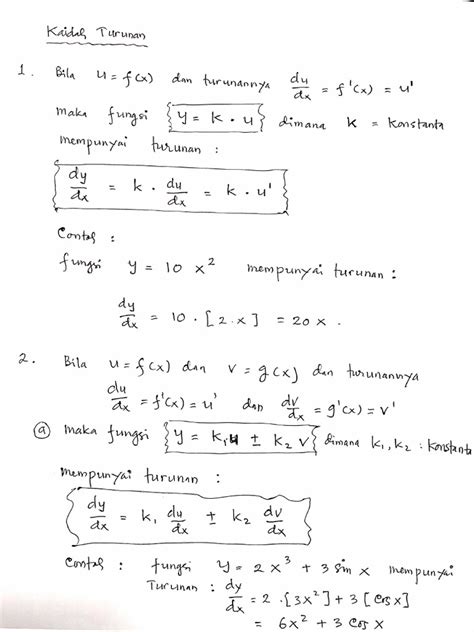 Kaidah Turunan
1. Bila u = f(x) dan turunannya du/dx = f'(x) = u'
maka fungsi {y = k · u} dimana k = konstanta
mempunyai turunan :
dy/dx = k · du/dx = k · u'
Contoh :
fungsi y = 10 x² mempunyai turunan :
dy/dx = 10 · [2.x] = 20 x .
2. Bila u = f(x) dan v = g(x) dan turunannya
du/dx = f'(x) = u' dan dv/dx = g'(x) = v'
(a) maka fungsi {y = k₁u ± k₂ v} dimana k₁, k₂ : konstanta
mempunyai turunan :
dy/dx = k₁ du/dx ± k₂ dv/dx
Contoh : fungsi y = 2 x³ + 3 sin x mempunyai
Turunan : dy/dx = 2 · [3x²] + 3 [cos x]
= 6x² + 3 cos x